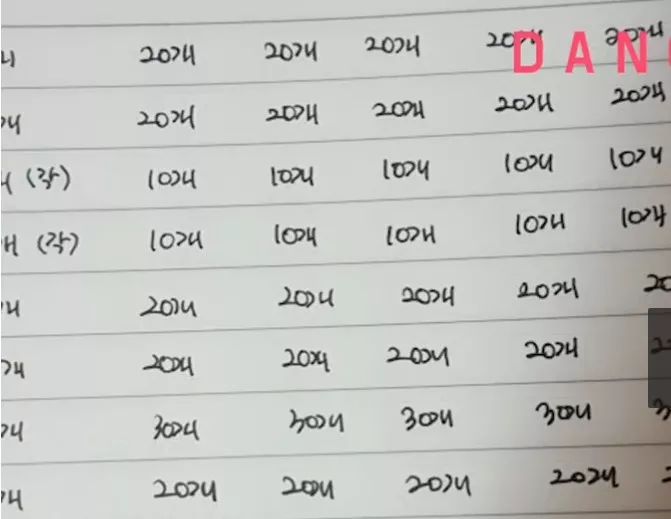 20개 20개 20개 20개 20개
DAN
개 20개 20개 20개 20개 20개
(각) 10개 10개 10개 10개 10개
개 (각) 10개 10개 10개 10개 10개
개 20개 20개 20개 20개 20
개 20개 20개 20개 20개
개 30개 30개 30개 30개 3
개 20개 20개 20개 20개